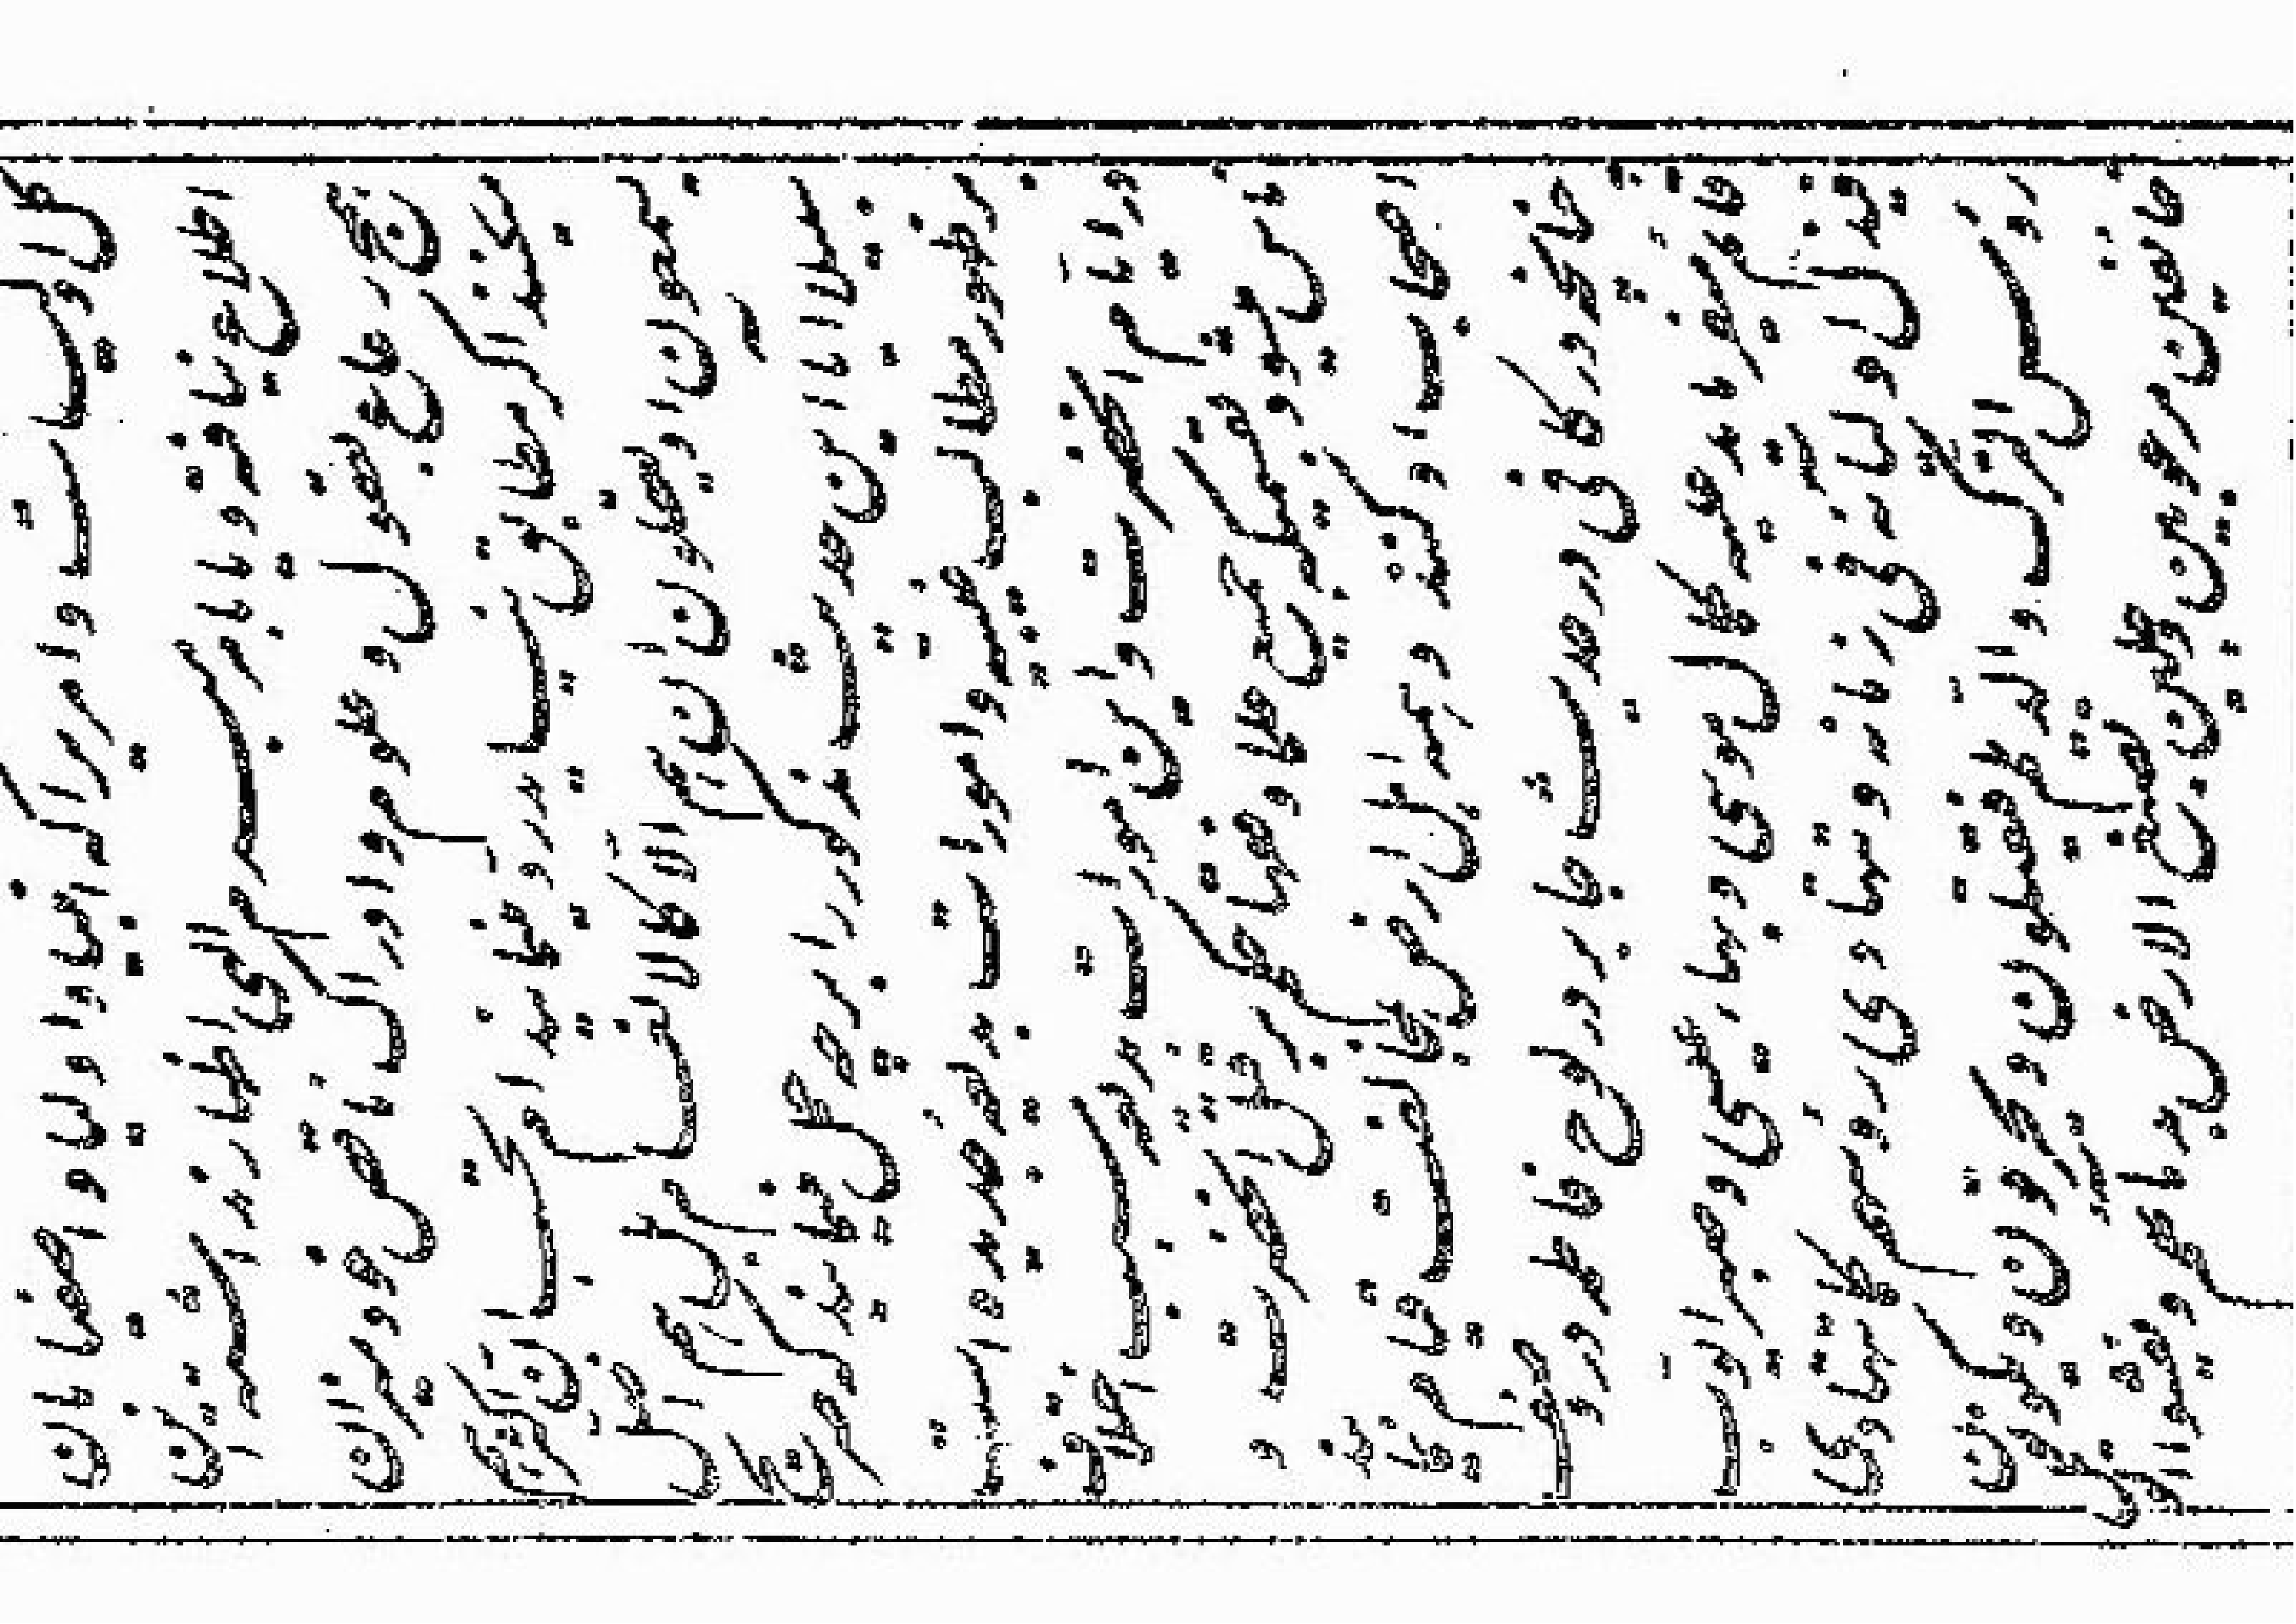 کل اولیاست و امریرا که انبیا و اولیا و اصفیا بان
اطلاع نیافته و یا بامر مبرم الهی اظهار نداشته این
همج رعاع بعقول و علوم و ادراک ناقص خود میزان
میکنند اگر مطابق نیست رد مینمایند ام تحسب ان اکثرهم
یسمعون او یعقلون ان هم الا کالانعام بل هم اضل
سبیلا ایا این حدیث مذکور را بر چه حمل مینمایند که صریح
بر ظهور مطالب غیبیه و امورات بدیعه جدیده است
در ایام انحضرت و این امورات بدیعه سبب اختلاف
ناس میشود بقسمیکه جمیع علما و فقها حکم بر قتل انحضرت و
اصحاب او کنند و همه اهل ارض بمخالفت قیام نمایند
چنانچه در کافی در حدیث جابر در لوح فاطمه در وصف
قائم میفرماید علیه کمال موسی و بهاء عیسی و صبر ایوب
فیذل اولیائه فی زمانه و تتهادی رؤسهم کما تتهادی
رؤس الترک و الدیلم فیقتلون و یحرقون و یکونون
خائفین مرعوبین وجلین تصبغ الارض بدمائهم و یفشو الویل